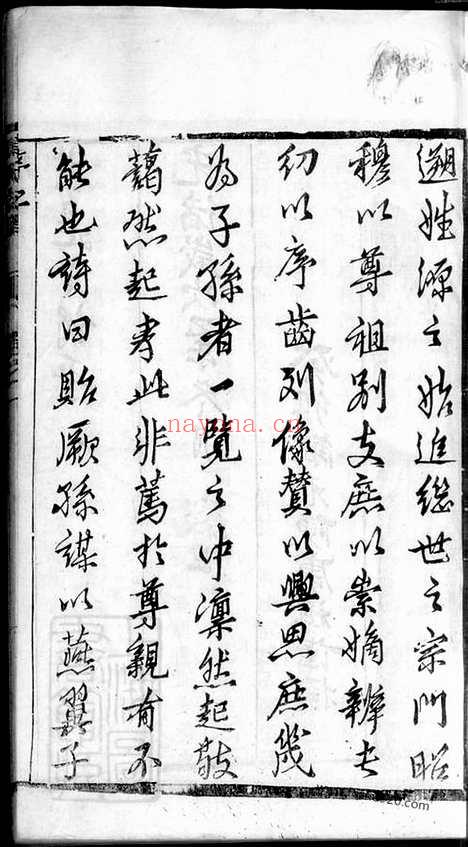 遡姓源之始追繼世之宗門昭
穆以尊祖別支庶以崇嫡辨長
幼以序齒列像贊以興思庶幾
為子孫者一覽之中凜然起敬
藹然起孝此非篤於尊親有不
能也詩曰貽厥孫謀以燕翼子
nayona.cn